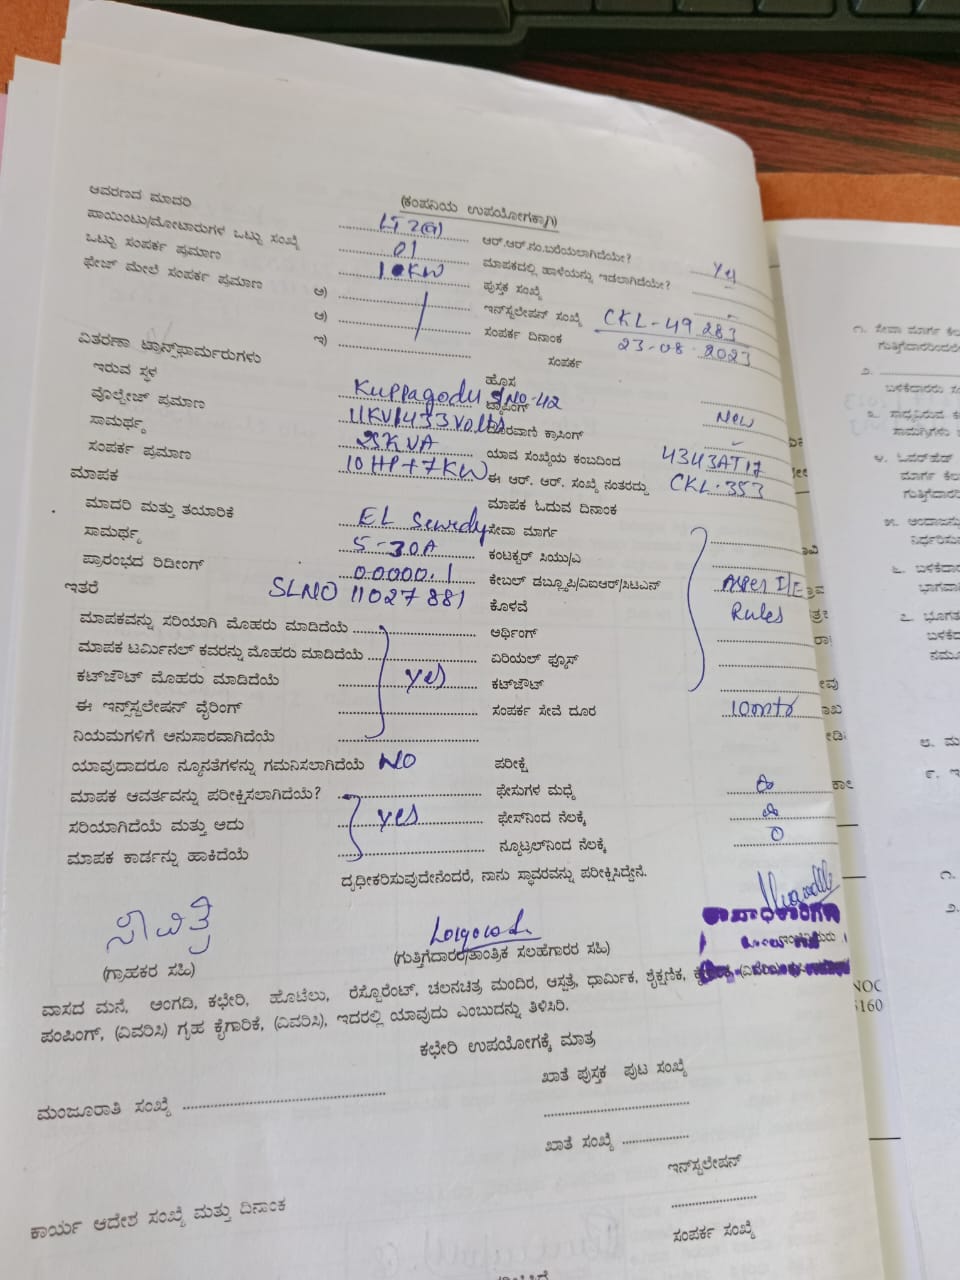 (ಕಂಪನಿಯ ಉಪಯೋಗಕ್ಕಾಗಿ)
ಆವರಣದ ಮಾದರಿ LT 2(a) ಆರ್.ಆರ್.ನಂ.ಬರೆಯಲಾಗಿದೆಯೇ? Yes
ಪಾಯಿಂಟು/ಮೋಟಾರುಗಳ ಒಟ್ಟು ಸಂಖ್ಯೆ 01 ಮಾಪಕದಲ್ಲಿ ಹಾಳೆಯನ್ನು ಇಡಲಾಗಿದೆಯೇ?
ಒಟ್ಟು ಸಂಪರ್ಕ ಪ್ರಮಾಣ 1 KW ಪುಸ್ತಕ ಸಂಖ್ಯೆ
ಫೇಜ್ ಮೇಲೆ ಸಂಪರ್ಕ ಪ್ರಮಾಣ ಅ) ಇನ್‌ಸ್ಟಲೇಷನ್ ಸಂಖ್ಯೆ CKL-49283
ಆ) ಸಂಪರ್ಕ ದಿನಾಂಕ 23-08-2023
ಇ) ಸಂಪರ್ಕ
ವಿತರಣಾ ಟ್ರಾನ್ಸ್‌ಫಾರ್ಮರುಗಳು
ಇರುವ ಸ್ಥಳ Kuppagodu SNO-42 ಹೊಸ New
ವೋಲ್ಟೇಜ್ ಪ್ರಮಾಣ 11KV/433 Volts ಟ್ಯಾಪಿಂಗ್
ಸಾಮರ್ಥ್ಯ 25KVA ದೂರವಾಣಿ ಕ್ರಾಸಿಂಗ್
ಸಂಪರ್ಕ ಪ್ರಮಾಣ 10HP+7KW ಯಾವ ಸಂಖ್ಯೆಯ ಕಂಬದಿಂದ 4343AT17
ಮಾಪಕ ಈ ಆರ್. ಆರ್. ಸಂಖ್ಯೆ ನಂತರದ್ದು CKL-353
ಮಾಪಕ ಓದುವ ದಿನಾಂಕ
ಮಾದರಿ ಮತ್ತು ತಯಾರಿಕೆ EL Sewedy ಸೇವಾ ಮಾರ್ಗ
ಸಾಮರ್ಥ್ಯ 5-30A ಕಂಟಕ್ಟರ್ ಸಿಯು/ಎ
ಪ್ರಾರಂಭದ ರಿಡೀಂಗ್ 00000.1 ಕೇಬಲ್ ಡಬ್ಲ್ಯೂಪಿ/ವಿಐಆರ್/ಸಿಟಿಎನ್ As per I/E
ಇತರೆ SLNO 11027881 ಕೊಳವೆ Rules
ಮಾಪಕವನ್ನು ಸರಿಯಾಗಿ ಮೊಹರು ಮಾಡಿದೆಯೆ ಅರ್ಥಿಂಗ್
ಮಾಪಕ ಟರ್ಮಿನಲ್ ಕವರನ್ನು ಮೊಹರು ಮಾಡಿದೆಯೆ ಏರಿಯಲ್ ಫ್ಯೂಸ್
ಕಟ್‌ಔಟ್ ಮೊಹರು ಮಾಡಿದೆಯೆ yes ಕಟ್‌ಔಟ್
ಈ ಇನ್ಸ್‌ಸ್ಟಲೇಷನ್ ವೈರಿಂಗ್ ಸಂಪರ್ಕ ಸೇವೆ ದೂರ 10mtr
ನಿಯಮಗಳಿಗೆ ಅನುಸಾರವಾಗಿದೆಯೆ
ಯಾವುದಾದರೂ ನ್ಯೂನತೆಗಳನ್ನು ಗಮನಿಸಲಾಗಿದೆಯೆ NO ಪರೀಕ್ಷೆ
ಮಾಪಕ ಆವರ್ತವನ್ನು ಪರೀಕ್ಷಿಸಲಾಗಿದೆಯೆ? ಫೇಸುಗಳ ಮಧ್ಯೆ
ಸರಿಯಾಗಿದೆಯೆ ಮತ್ತು ಅದು yes ಫೇಸ್‌ನಿಂದ ನೆಲಕ್ಕೆ
ಮಾಪಕ ಕಾರ್ಡನ್ನು ಹಾಕಿದೆಯೆ ನ್ಯೂಟ್ರಲ್‌ನಿಂದ ನೆಲಕ್ಕೆ
ದೃಢೀಕರಿಸುವುದೇನೆಂದರೆ, ನಾನು ಸ್ಥಾವರವನ್ನು ಪರೀಕ್ಷಿಸಿದ್ದೇನೆ.
(ಗ್ರಾಹಕರ ಸಹಿ) (ಗುತ್ತಿಗೆದಾರರ/ತಾಂತ್ರಿಕ ಸಲಹೆಗಾರರ ಸಹಿ)
ವಾಸದ ಮನೆ, ಅಂಗಡಿ, ಕಛೇರಿ, ಹೊಟೆಲು, ರೆಸ್ಟೋರೆಂಟ್, ಚಲನಚಿತ್ರ ಮಂದಿರ, ಆಸ್ಪತ್ರೆ, ಧಾರ್ಮಿಕ, ಶೈಕ್ಷಣಿಕ,
ಪಂಪಿಂಗ್, (ವಿವರಿಸಿ) ಗೃಹ ಕೈಗಾರಿಕೆ, (ವಿವರಿಸಿ), ಇದರಲ್ಲಿ ಯಾವುದು ಎಂಬುದನ್ನು ತಿಳಿಸಿರಿ.
ಕಛೇರಿ ಉಪಯೋಗಕ್ಕೆ ಮಾತ್ರ
ಖಾತೆ ಪುಸ್ತಕ ಪುಟ ಸಂಖ್ಯೆ
ಮಂಜೂರಾತಿ ಸಂಖ್ಯೆ
ಖಾತೆ ಸಂಖ್ಯೆ
ಇನ್‌ಸ್ಟಲೇಷನ್
ಕಾರ್ಯ ಆದೇಶ ಸಂಖ್ಯೆ ಮತ್ತು ದಿನಾಂಕ
ಸಂಪರ್ಕ ಸಂಖ್ಯೆ